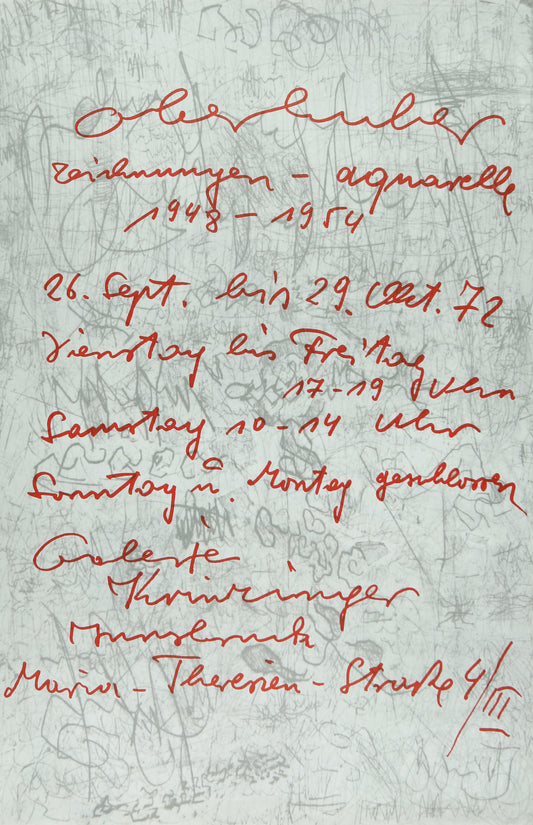 oberhuber
zeichnungen – aquarelle
1948 – 1954
26. Sept. bis 29. Okt. 72
Dienstag bis Freitag
17-19 Uhr
Samstag 10-14 Uhr
Sonntag u. Montag geschlossen
Galerie
Krinzinger
Innsbruck
Maria – Theresien – Straße 4/III